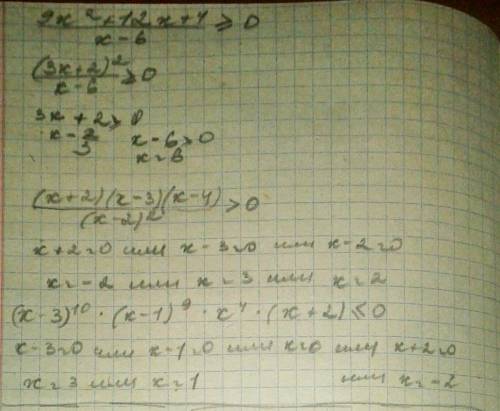 9x² + 12x + 4 / x - 6 ≥ 0
(3x+2)² / x - 6 ≥ 0
3x + 2 ≥ 0
x = 2/3 x - 6 > 0
x = 6
(x+2)(x-3)(x-4) / (x-2)² > 0
x+2=0 или x-3=0 или x-2=0
x=-2 или x=3 или x=2
(x-3)¹⁰ · (x-1)⁹ · x⁴ · (x+2) ≤ 0
x-3=0 или x-1=0 или x=0 или x+2=0
x=3 или x=1 или x=-2